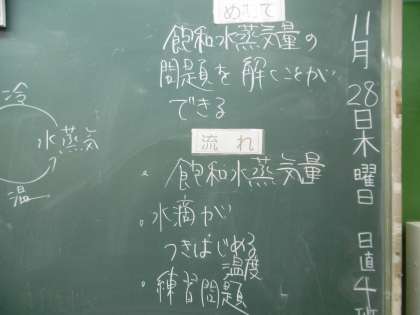 11月28日木曜日 日直4班
めあて
飽和水蒸気量の
問題を解くことが
できる
流れ
・飽和水蒸気量
・水滴が
つきはじめる
温度
・練習問題
冷
水蒸気
温